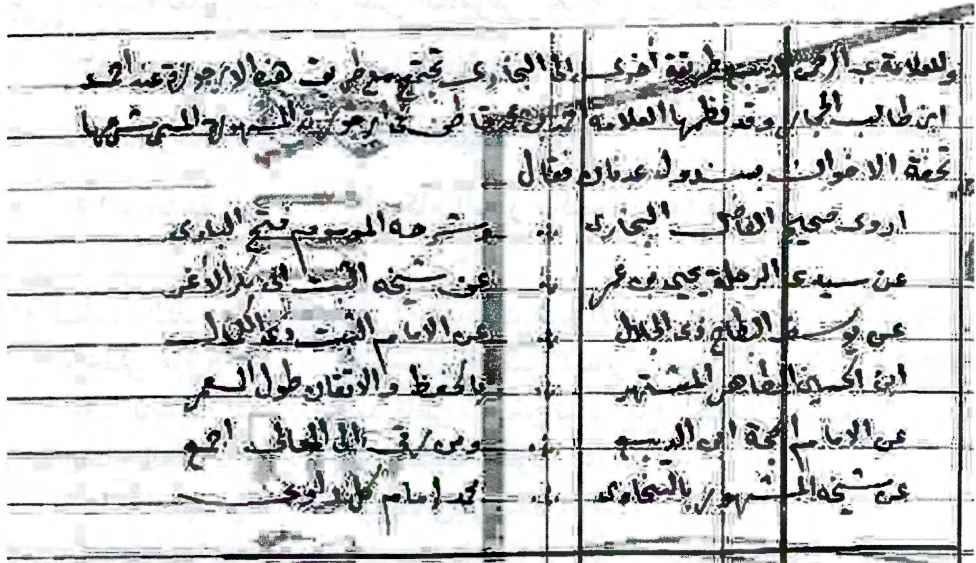 وللعلامة عبد الرحمن الديبع طريقة أخرى إلى البخاري تجتمع مع طريق هذه الارجوزة عند أحمد
ابن طالب الحجار وقد نظمها العلامة أحمد بن محمد قاطن في أرجوزته المشهورة المسمى شرحها
تحفة الاخوان بسند ولد عدنان فقال
اروى صحيح الفاضل البخارى وشرحه الموسوم فتح البارى
عن سيدى الرحلة يحيى بن عمر عن شيخه الثبت ابى بكر الأغر
عن يوسف البطاح ذى الجلال عن الامام الثبت ذى الكمال
ابن الحسين الطاهر المشتهر بالحفظ والاتقان طول العمر
عن الامام الحجة ابن الديبع ومن رقى الى المحل
عن شيخه المشهور بالسخاوى محمد امام كل